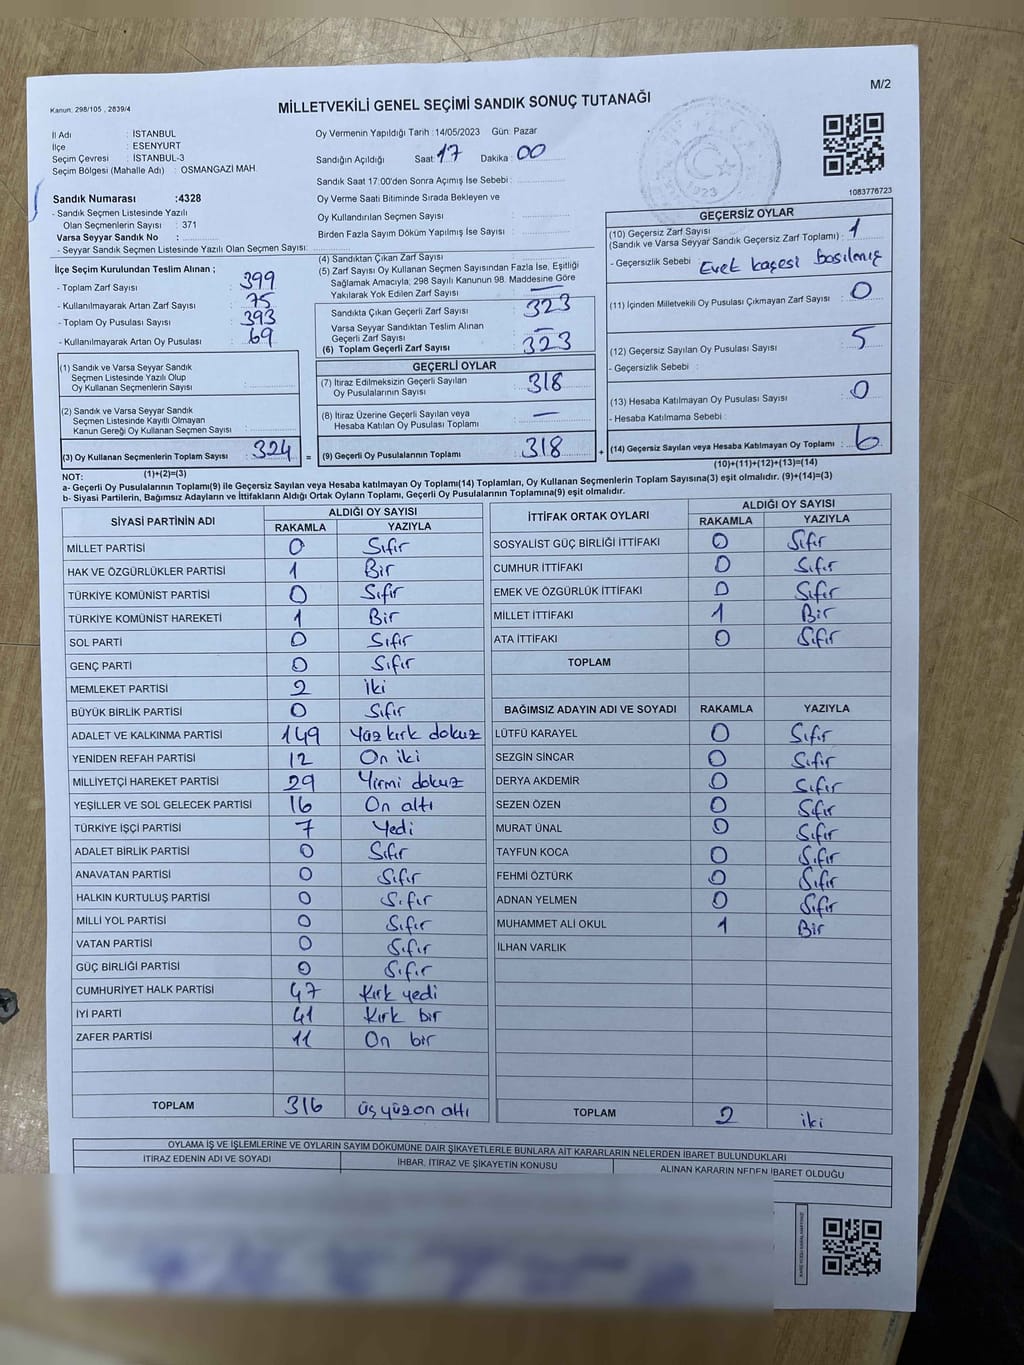 M/2
Kanun: 298/105 , 2839/4
MİLLETVEKİLİ GENEL SEÇİMİ SANDIK SONUÇ TUTANAĞI
İl Adı : İSTANBUL
İlçe : ESENYURT
Seçim Çevresi : İSTANBUL-3
Seçim Bölgesi (Mahalle Adı) : OSMANGAZİ MAH.
Sandık Numarası :4328
- Sandık Seçmen Listesinde Yazılı
Olan Seçmenlerin Sayısı : 371
Varsa Seyyar Sandık No :
- Seyyar Sandık Seçmen Listesinde Yazılı Olan Seçmen Sayısı:
Oy Vermenin Yapıldığı Tarih :14/05/2023 Gün: Pazar
Sandığın Açıldığı Saat: 17 Dakika : 00
Sandık Saat 17:00'den Sonra Açımış İse Sebebi :
Oy Verme Saati Bitiminde Sırada Bekleyen ve
Oy Kullandırılan Seçmen Sayısı :
Birden Fazla Sayım Döküm Yapılmış İse Sayısı :
1083776723
İlçe Seçim Kurulundan Teslim Alınan ;
- Toplam Zarf Sayısı : 399
- Kullanılmayarak Artan Zarf Sayısı : 75
- Toplam Oy Pusulası Sayısı : 393
- Kullanılmayarak Artan Oy Pusulası : 69
(1) Sandık ve Varsa Seyyar Sandık
Seçmen Listesinde Yazılı Olup
Oy Kullanan Seçmenlerin Sayısı :
(2) Sandık ve Varsa Seyyar Sandık
Seçmen Listesinde Kayıtlı Olmayan
Kanun Gereği Oy Kullanan Seçmen Sayısı :
(3) Oy Kullanan Seçmenlerin Toplam Sayısı : 324 =
(1)+(2)=(3)
(4) Sandıktan Çıkan Zarf Sayısı :
(5) Zarf Sayısı Oy Kullanan Seçmen Sayısından Fazla İse, Eşitliği
Sağlamak Amacıyla; 298 Sayılı Kanunun 98. Maddesine Göre
Yakılarak Yok Edilen Zarf Sayısı : —
Sandıkta Çıkan Geçerli Zarf Sayısı : 323
Varsa Seyyar Sandıktan Teslim Alınan
Geçerli Zarf Sayısı : —
(6) Toplam Geçerli Zarf Sayısı : 323
GEÇERLİ OYLAR
(7) İtiraz Edilmeksizin Geçerli Sayılan
Oy Pusulalarının Sayısı : 318
(8) İtiraz Üzerine Geçerli Sayılan veya
Hesaba Katılan Oy Pusulası Toplamı : —
(9) Geçerli Oy Pusulalarının Toplamı : 318 +
GEÇERSİZ OYLAR
(10) Geçersiz Zarf Sayısı
(Sandık ve Varsa Seyyar Sandık Geçersiz Zarf Toplamı) : 1
- Geçersizlik Sebebi : Evet kaşesi Basılmış
(11) İçinden Milletvekili Oy Pusulası Çıkmayan Zarf Sayısı : 0
(12) Geçersiz Sayılan Oy Pusulası Sayısı : 5
- Geçersizlik Sebebi :
(13) Hesaba Katılmayan Oy Pusulası Sayısı : 0
- Hesaba Katılmama Sebebi :
(14) Geçersiz Sayılan veya Hesaba Katılmayan Oy Toplamı : 6
(10)+(11)+(12)+(13)=(14)
NOT:
a- Geçerli Oy Pusulalarının Toplamı(9) ile Geçersiz Sayılan veya Hesaba katılmayan Oy Toplamı(14) Toplamları, Oy Kullanan Seçmenlerin Toplam Sayısına(3) eşit olmalıdır. (9)+(14)=(3)
b- Siyasi Partilerin, Bağımsız Adayların ve İttifakların Aldığı Ortak Oyların Toplamı, Geçerli Oy Pusulalarının Toplamına(9) eşit olmalıdır.
SİYASİ PARTİNİN ADI ALDIĞI OY SAYISI
RAKAMLA YAZIYLA
MİLLET PARTİSİ 0 Sıfır
HAK VE ÖZGÜRLÜKLER PARTİSİ 1 Bir
TÜRKİYE KOMÜNİST PARTİSİ 0 Sıfır
TÜRKİYE KOMÜNİST HAREKETİ 1 Bir
SOL PARTİ 0 Sıfır
GENÇ PARTİ 0 Sıfır
MEMLEKET PARTİSİ 2 iki
BÜYÜK BİRLİK PARTİSİ 0 Sıfır
ADALET VE KALKINMA PARTİSİ 149 Yüz kırk dokuz
YENİDEN REFAH PARTİSİ 12 On iki
MİLLİYETÇİ HAREKET PARTİSİ 29 Yirmi dokuz
YEŞİLLER VE SOL GELECEK PARTİSİ 16 On altı
TÜRKİYE İŞÇİ PARTİSİ 7 Yedi
ADALET BİRLİK PARTİSİ 0 Sıfır
ANAVATAN PARTİSİ 0 Sıfır
HALKIN KURTULUŞ PARTİSİ 0 Sıfır
MİLLİ YOL PARTİSİ 0 Sıfır
VATAN PARTİSİ 0 Sıfır
GÜÇ BİRLİĞİ PARTİSİ 0 Sıfır
CUMHURİYET HALK PARTİSİ 47 Kırk yedi
İYİ PARTİ 41 Kırk bir
ZAFER PARTİSİ 11 On bir
TOPLAM 316 üç yüz on altı
İTTİFAK ORTAK OYLARI ALDIĞI OY SAYISI
RAKAMLA YAZIYLA
SOSYALİST GÜÇ BİRLİĞİ İTTİFAKI 0 Sıfır
CUMHUR İTTİFAKI 0 Sıfır
EMEK VE ÖZGÜRLÜK İTTİFAKI 0 Sıfır
MİLLET İTTİFAKI 1 Bir
ATA İTTİFAKI 0 Sıfır
TOPLAM
BAĞIMSIZ ADAYIN ADI VE SOYADI RAKAMLA YAZIYLA
LÜTFÜ KARAYEL 0 Sıfır
SEZGİN SİNCAR 0 Sıfır
DERYA AKDEMİR 0 Sıfır
SEZEN ÖZEN 0 Sıfır
MURAT ÜNAL 0 Sıfır
TAYFUN KOCA 0 Sıfır
FEHMİ ÖZTÜRK 0 Sıfır
ADNAN YELMEN 0 Sıfır
MUHAMMET ALİ OKUL 1 Bir
İLHAN VARLIK
TOPLAM 2 iki
OYLAMA İŞ VE İŞLEMLERİNE VE OYLARIN SAYIM DÖKÜMÜNE DAİR ŞİKAYETLERLE BUNLARA AİT KARARLARIN NELERDEN İBARET BULUNDUKLARI
İTİRAZ EDENİN ADI VE SOYADI İHBAR, İTİRAZ VE ŞİKAYETİN KONUSU ALINAN KARARIN NEDEN İBARET OLDUĞU